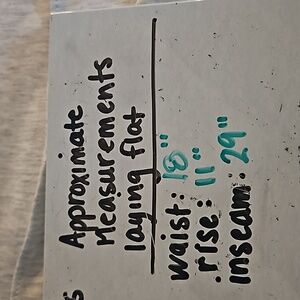 Approximate
Measurements
laying flat
waist: 18"
rise: 11"
inseam: 29"